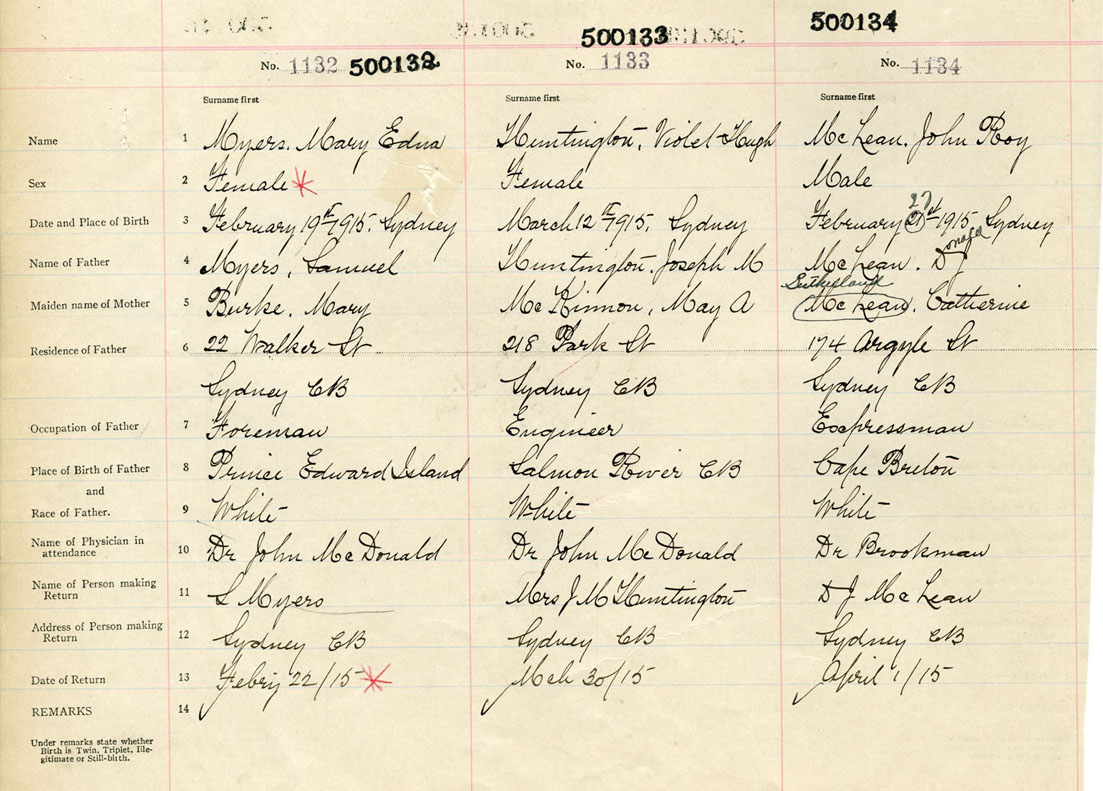 500133 500134
No. 1132 500132 No. 1133 No. 1134
Surname first Surname first Surname first
Name 1 Myers, Mary Edna Huntington, Violet Hugh McLean, John Roy
Sex 2 Female * Female Male
27
Date and Place of Birth 3 February 19th 1915, Sydney March 12th 1915, Sydney February 21st 1915 Sydney
onald
Name of Father 4 Myers, Samuel Huntington, Joseph M McLean, D J
Sutherland
Maiden name of Mother 5 Burke, Mary McKinnon, May A McLean, Catherine
Residence of Father 6 22 Walker St 218 Park St 174 Argyle St
Sydney CB Sydney CB Sydney CB
Occupation of Father 7 Foreman Engineer Expressman
Place of Birth of Father 8 Prince Edward Island Salmon River CB Cape Breton
and
Race of Father. 9 White White White
Name of Physician in
attendance 10 Dr John McDonald Dr John McDonald Dr Brookman
Name of Person making
Return 11 S Myers Mrs J M Huntington D J McLean
Address of Person making
Return 12 Sydney CB Sydney CB Sydney CB
Date of Return 13 Febry 22/15 * Mch 30/15 April 1/15
REMARKS 14
Under remarks state whether
Birth is Twin, Triplet, Ille-
gitimate or Still-birth.